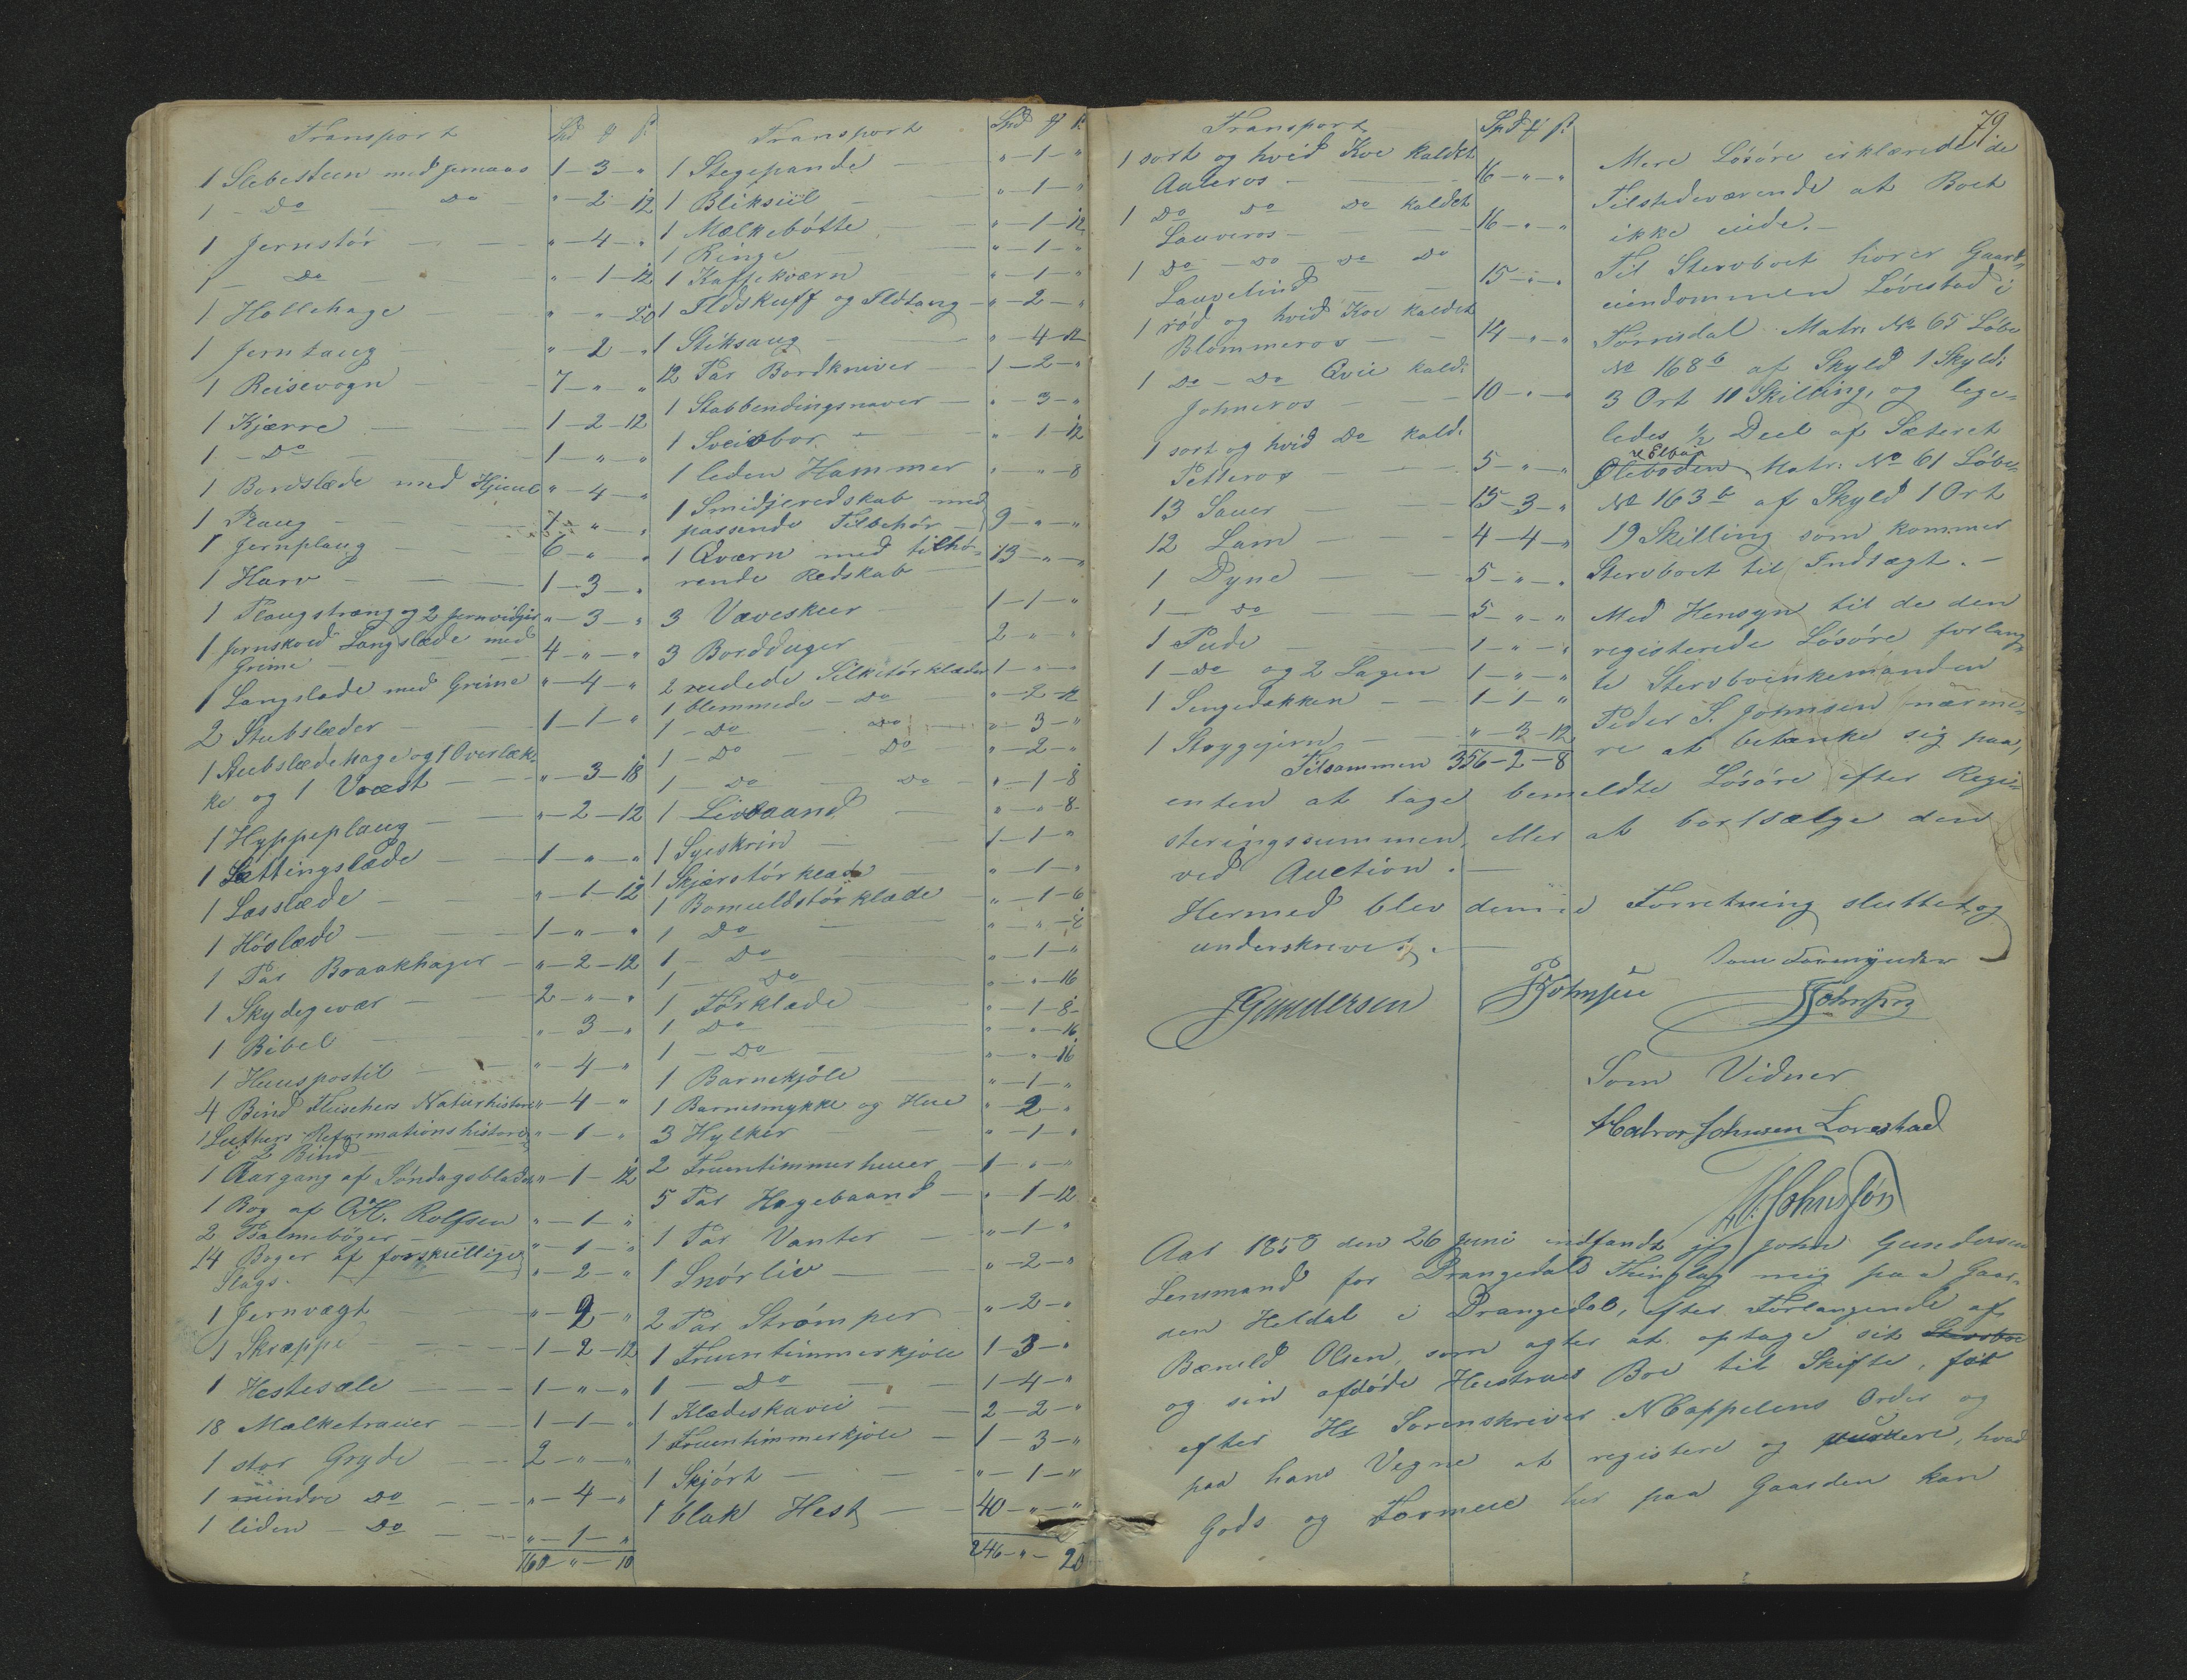 Transport Spd ₰ ß
1 Slebesteen med Jernaas 1 – 3 – "
1 – Do – Do – " – 2 – 12
1 Jernstör – " – 4 – "
1 – Do – " – 1 – 12
1 Hollehage – " – " – 20
1 Jerntaug – " – 2 – "
1 Reisevogn – 7 – " – "
1 Kjærre – 1 – 2 – 12
1 – Do – 1 – " – "
1 Bordslæde med Hjuul " – 4 – "
1 Plaug – 1 – " – "
1 Jernplaug – 6 – " – "
1 Harv – 1 – 3 – "
1 Plaugstræng og 2 Jernvidjer " – 3 – "
1 Jernskoed Langslæde med
Grime – 4 – " – "
1 Langslæde med Grime " – 4 – "
2 Stubslæder – 1 – 1 – "
1 Stubslædehage og 1 Overlæk-
ke og 1 Voæst – " – 3 – 18
1 Hyppeplaug – " – 2 – 12
1 Sættingslæde – 1 – " – "
1 Lasslæde – " – 1 – 12
1 Höslæde – 1 – " – "
1 Par Braakhager – " – 2 – 12
1 Skydegevær – 2 – " – "
1 Bibel – " – 3 – "
1 Huuspostil – " – 4 – "
4 Bind Naturhistorie " – 4 – "
1 Luthers Reformationshistorie
i 2 Bind – " – 1 – "
1 Aargang af Söndagsbladet " – 1 – 12
1 Bog af Rolfsen " – 1 – "
2 Psalmebøger – " – 1 – "
14 Bøger af forskjellige
Slags – " – 2 – "
1 Jernvægt – " – 2 – "
1 Skræppe – 1 – 2 – 12
1 Hestesæle – 1 – " – "
18 Mælketrauer – 1 – 1 – "
1 stor Gryde – 2 – " – "
1 mindre Do – " – 4 – "
1 liden – Do – " – 1 – "
160 – " – 10
Transport Spd ₰ ß
1 Stegepande – " – 1 – "
1 Bliksiil – " – 1 – "
1 Mælkebötte – " – 1 – 12
1 Ringe – " – 1 – "
1 Kaffekværn – " – 1 – "
1 Ildskuff og Ildtang – " – 2 – "
1 Stiksaug – " – 4 – 12
12 Par Bordkniver – 1 – 2 – "
1 Stabbendingsnaver – " – 3 – "
1 Sveisbor – " – 1 – 12
1 leden Hammer – " – " – 8
1 Smidjeredskab med
passende Tilbehör – 9 – " – "
1 Qværn med tilhö-
rende Redskab – 13 – " – "
3 Væveskeer – 1 – 1 – "
3 Bordduger – 2 – " – "
2 rudede Silketörklæder 1 – " – "
1 blommede – Do – " – 2 – 12
1 – Do – Do – " – 3 – "
1 – Do – Do – " – 2 – "
1 – Do – Do – " – 1 – 8
1 Livbaand – " – " – 8
1 Syeskrin – 1 – 1 – "
1 Skjærstörklæde – " – 1 – "
1 Bomuldstörklæde – " – 1 – 6
1 Do – " – " – 8
1 – Do – " – 1 – "
1 – Do – " – " – 16
1 Förklæde – " – 1 – 8
1 – Do – " – " – 16
1 – Do – " – " – 16
1 Barnekjöle – " – 1 – "
1 Barnesmykke og Hue " – 2 – "
3 Hylker – " – 1 – "
2 Fruentimmerhuer – 1 – " – "
5 Par Hagebaand – " – 1 – 12
1 Par Vanter – " – 1 – "
1 Snörliv – " – 2 – "
2 Par Strömper – " – 2 – "
1 Fruentimmerkjöle 1 – 3 – "
1 – Do – 1 – 4 – "
1 Klædeskavii – 2 – 2 – "
1 Fruentimmerkjöle – 1 – 3 – "
1 Skjört – " – 1 – "
1 blak Hest – 40 – " – "
246 – " – 20
79
Transport Spd ₰ ß
1 sort og hvid Koe kaldet
Aaleros – 16 – " – "
1 Do Do Do kaldet
Lauveros – 16 – " – "
1 Do – Do – Do Do
Lauvelind – 15 – " – "
1 röd og hvid Koe kaldet
Blommeros – 14 – " – "
1 Do – Do Qvie kald:
Johneros – 10 – " – "
1 sort og hvid Do kald:
Petteros – 5 – " – "
13 Sauer – 15 – 3 – "
12 Lam – 4 – 4 – "
1 Dyne – 5 – " – "
1 – Do – 5 – " – "
1 Pude – 1 – " – "
1 – Do og 2 Lagen 1 – " – "
1 Sengedækken – 1 – 1 – "
1 Strygejern – " – 3 – 12
Tilsammen 356 – 2 – 8
Mere Lösöre erklærede de
Tilstedeværende at Boet
ikke eiede. –
Til Stervboet hörer Gaards-
eiendommen Lövestad i
Törrisdal Matr. No 65 Löbe
No 168 b af Skyld 1 Skyld:
3 Ort 11 Skilling, og lige-
ledes ½ Deel af Sæteret
Matr: No 61 Löbe-
No 163 b af Skyld 1 Ort
19 Skilling som kommer
Stervboet til Indtægt. –
Med Hensyn til de den
registerede Lösöre forlang-
te Stervboenkemanden
Peder S. Johnsen nærme-
re at betænke sig paa,
enten at tage bemeldte Lösöre efter Regi-
steringssummen, eller at bortsælge den
ved Auction. –
Hermed blev denne Forretning sluttet og
underskrevet. –
JGundersen PJohnsen Som Formynder
Johnsen
Som Vidner
Halvor Johnsen Lovestad
Johnsön
Aar 1858 den 26 Juni indfandt jeg John Gundersen
Lensmand for Drangedals Thinglag mig paa Gaar-
den Heldal i Drangedal, efter Forlangende af
Olsen, som agter at optage sit Stervboe
og sin afdöde Hustrues Boe til Skifte, for
efter Hr Sorenskriver NCappelens Order og
paa hans Vegne at registere og vurdere, hvad
Gods og Formue her paa Gaarden kan